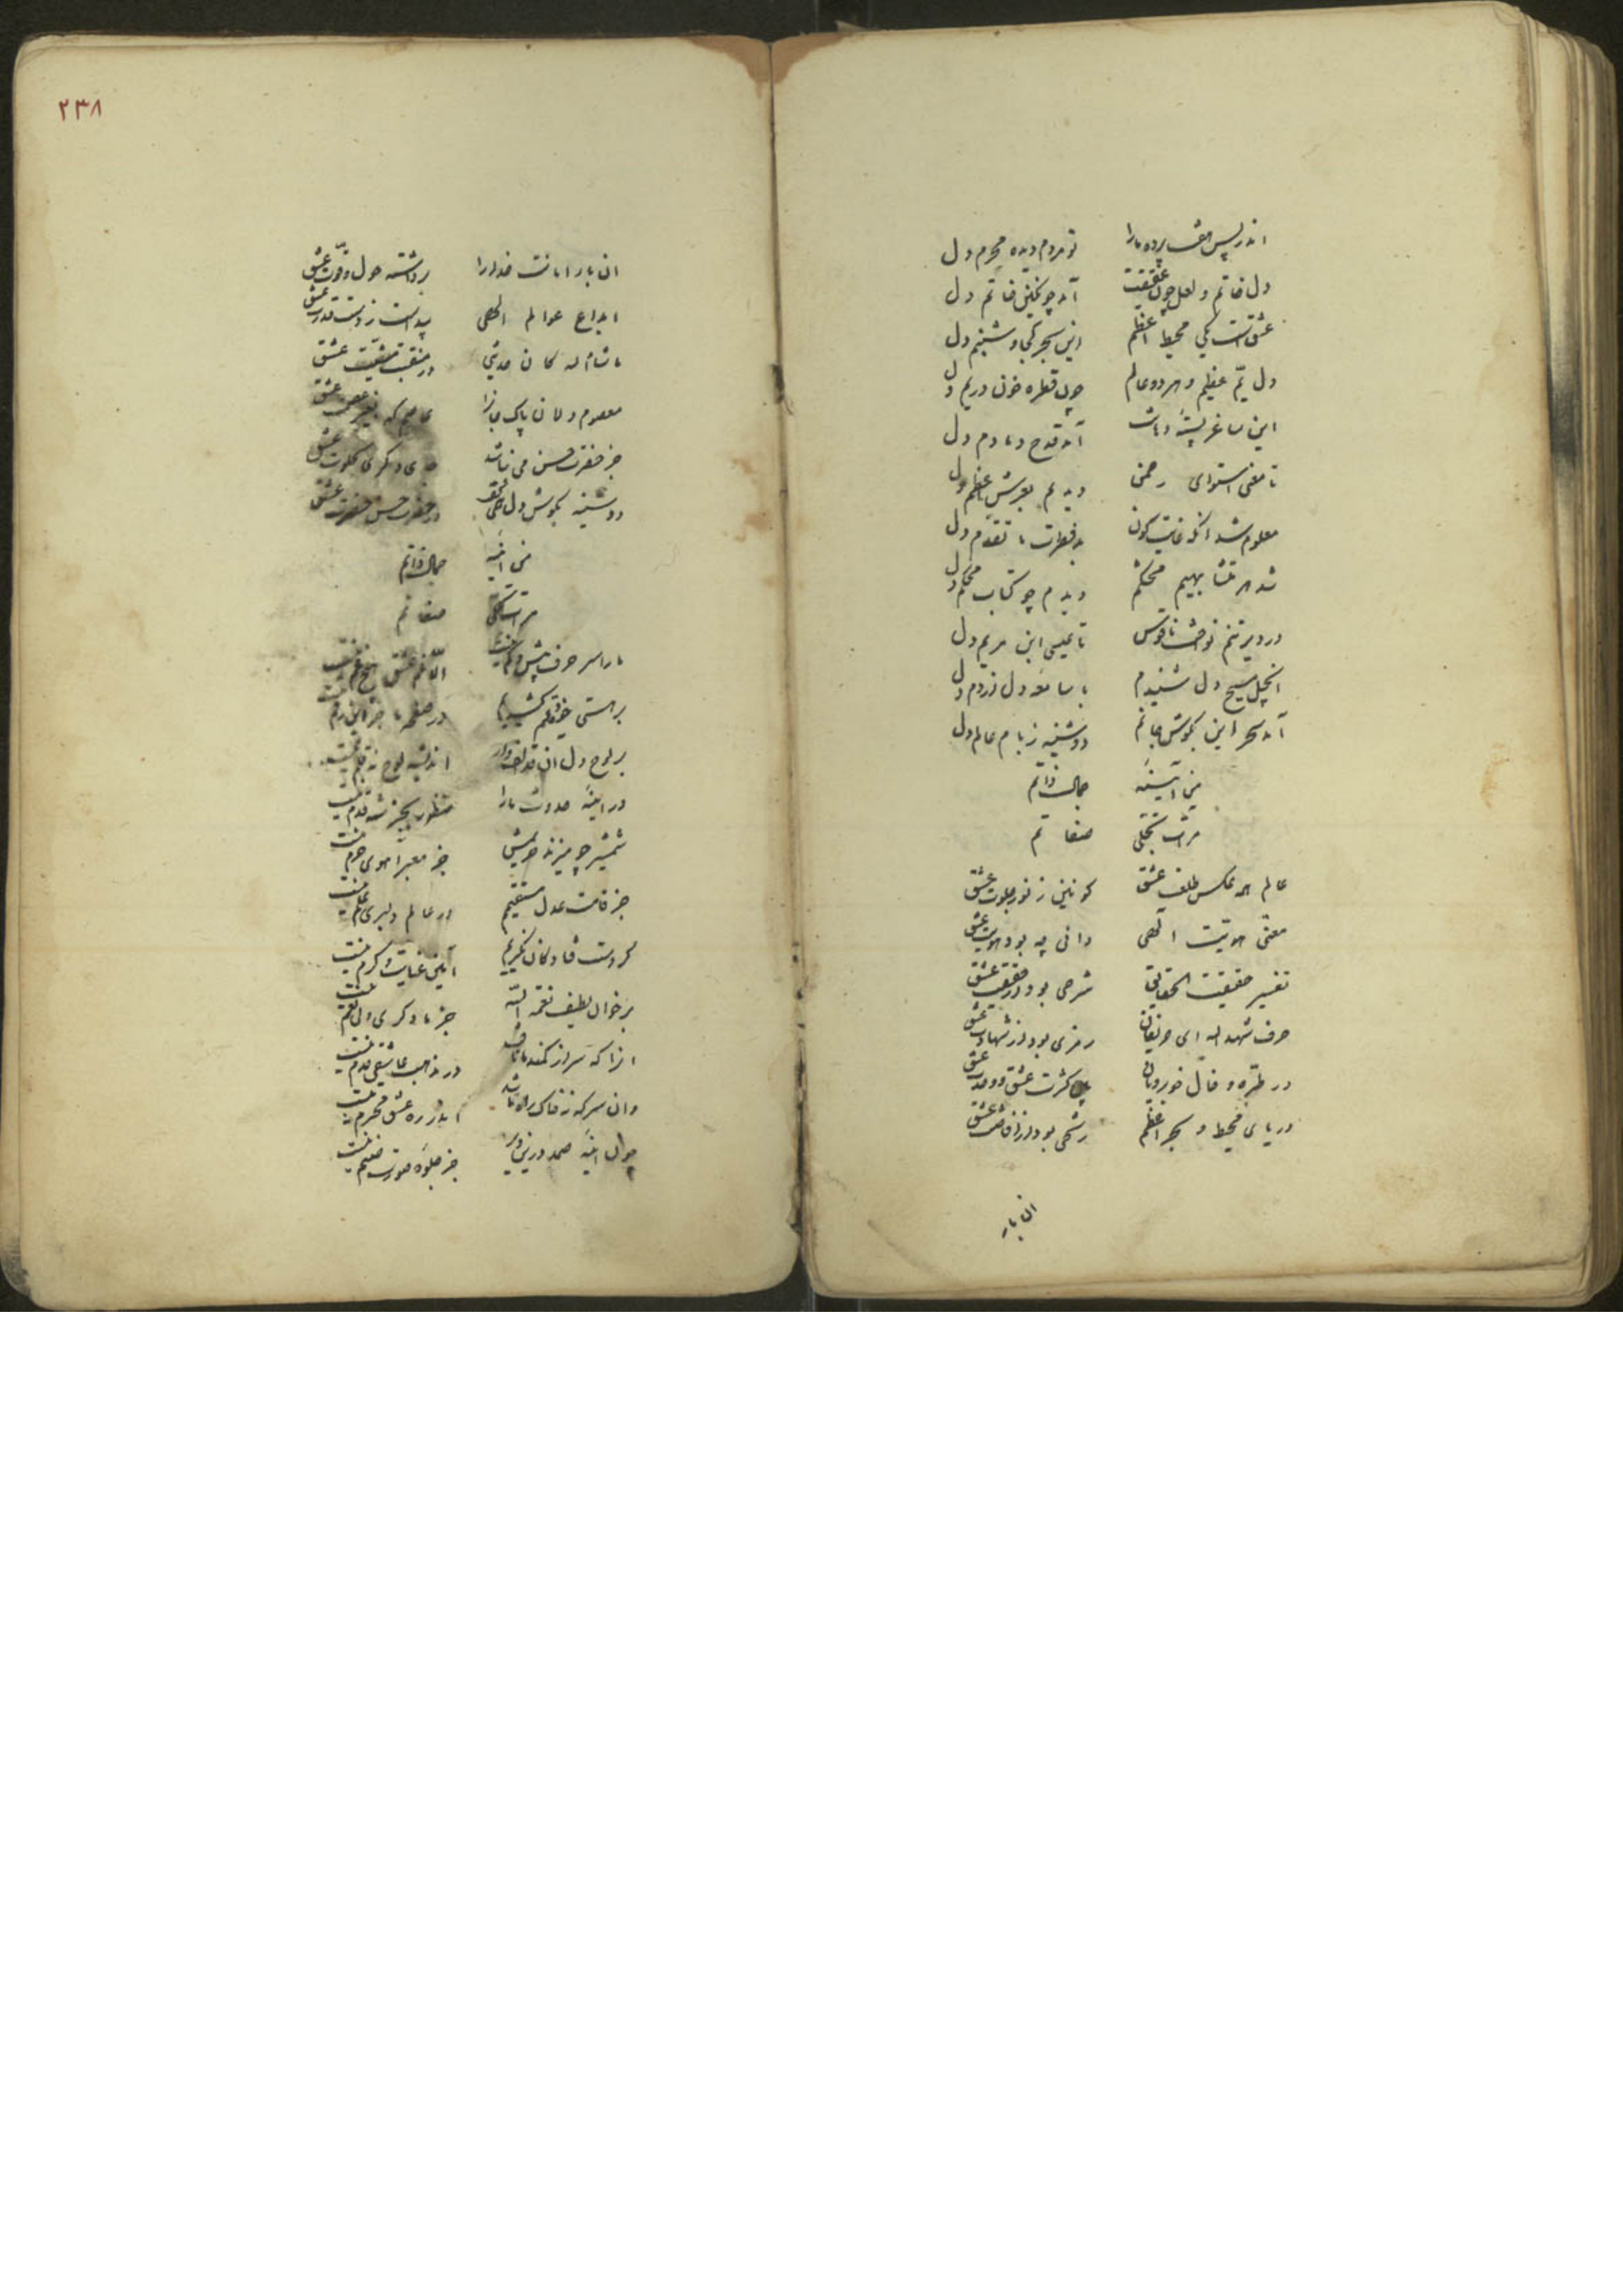 اندر پس هفت پرده ما را تو مردم دیده محرم دل
دل خاتم و لعل چون عقیقت آمد چو نگین خاتم دل
عشق است یکی محیط اعظم این بحر کجا و شبنم دل
دل یم عظیم و هر دو عالم چون قطره خون در یم دل
این ساغر
آمد قدح دمادم دل
تا معنی استوای رحمن دیدم بعرش اعظم دل
معلوم شد آنکه غایت کون بد فطرت با تقدم دل
شد هر متشابهیم محکم دیدم چو کتاب محکم دل
در دیر تنم نواخت ناقوس تا عیسی ابن مریم دل
انجیل مسیح دل شنیدم با سامعه دل از دم دل
آمد سحر این بگوش جانم دوشینه ز بام عالم دل
من آینه جمال ذاتم
مرآت تجلی صفاتم
عالم همه عکس طلعت عشق کونین ز نور جلوت عشق
معنی هویت الهی دانی چه بود هویت عشق
تفسیر حقیقت الحقایق شرحی بود از حقیقت عشق
حرف شهد الله ای حریفان رمزی بود از شهادت عشق
در طره و خال خوبرویان کثرت عشق و وحدت عشق
دریای محیط و بحر اعظم رشحی بود از افاضت عشق
ان بار
٢٣٨
ان بار امانت خدا را برداشته حول و قوت عشق
ابداع عوالم الهی پیداست ز دست قدرت عشق
ما شاء الله کان
در منقبت مشیت عشق
معصوم دلان پاک
عشق
جز حضرت حسن می نباشد
عشق
دوشینه بگوش دل
در حضرت حسن حضرت عشق
من اینه جمال ذاتم
مرآت تجلی صفاتم
ما را سر حرف بیش و کم نیست الا غم عشق هیچ غم نیست
بر هستی خود قلم کشیدیم در صفحه ما جز این رقم نیست
بر لوح دل ان قد الف وار اندیشه لوح نه قلم نیست
در اینه حدوث ما را منظور بجز شه قدم نیست
شمشیر چو میزند حریمش جز معبر اهوی حرم نیست
جز قامت عدل مستقیم در عالم دلبری علم نیست
گر دست فتادگان نگیریم آیین عنایت و کرم نیست
بر خوان لطیف نعمة الله جز ما دگری ولی نعم نیست
انرا که سر از کمند ما تافت در مذهب عاشقی قدم نیست
وان سر که نه خاک راه ما شد اندر ره عشق محترم نیست
چون اینه صمد درین دیر جز جلوه صورت صنم نیست